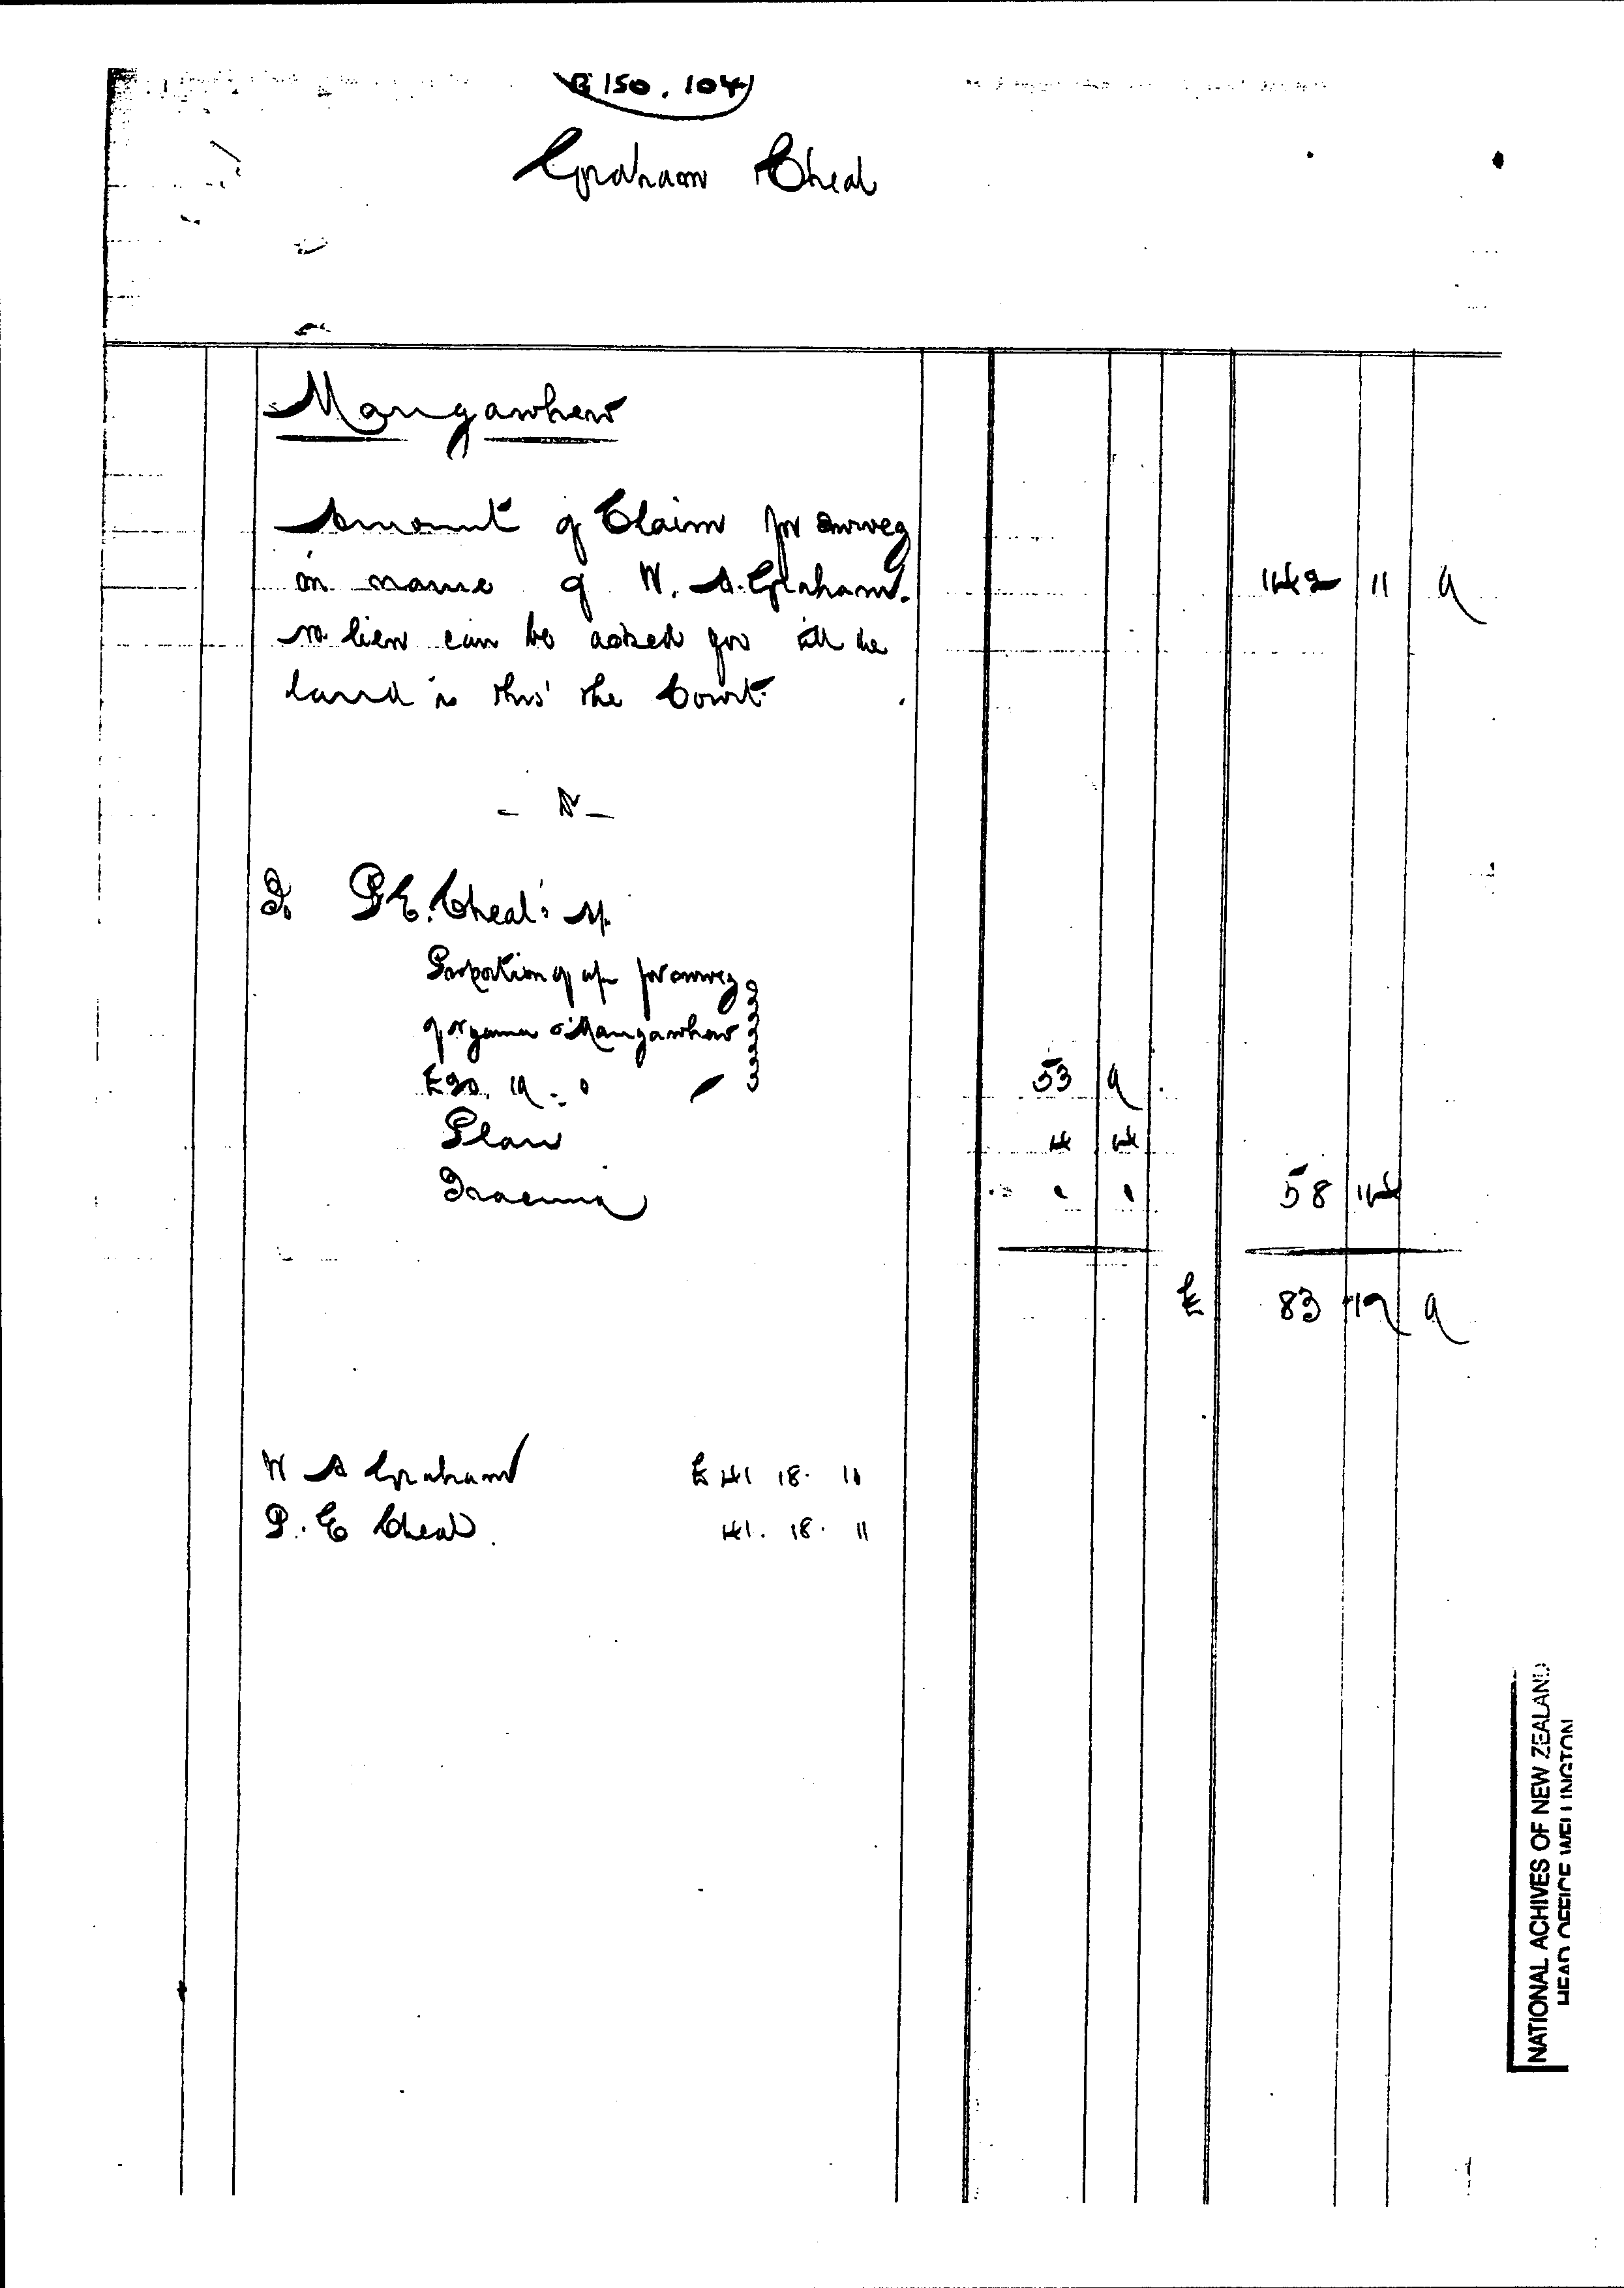 B 150. 104
Graham Cheal
Mangawhero
Amount of Claim for survey
in name of W. A. Graham. 142 11 9
no lien can be asked for till the
land is thro' the Court.
To P.E. Cheal's a/c
Proportion of a/c for survey
of Mangawhero
53 9
Plan 4 4
Tracing 1 1 58 14
£ 83 17 9
W A Graham £41 18. 10
P. E Cheal. 41. 18. 11
NATIONAL ACHIVES OF NEW ZEALAND
HEAD OFFICE WELLINGTON